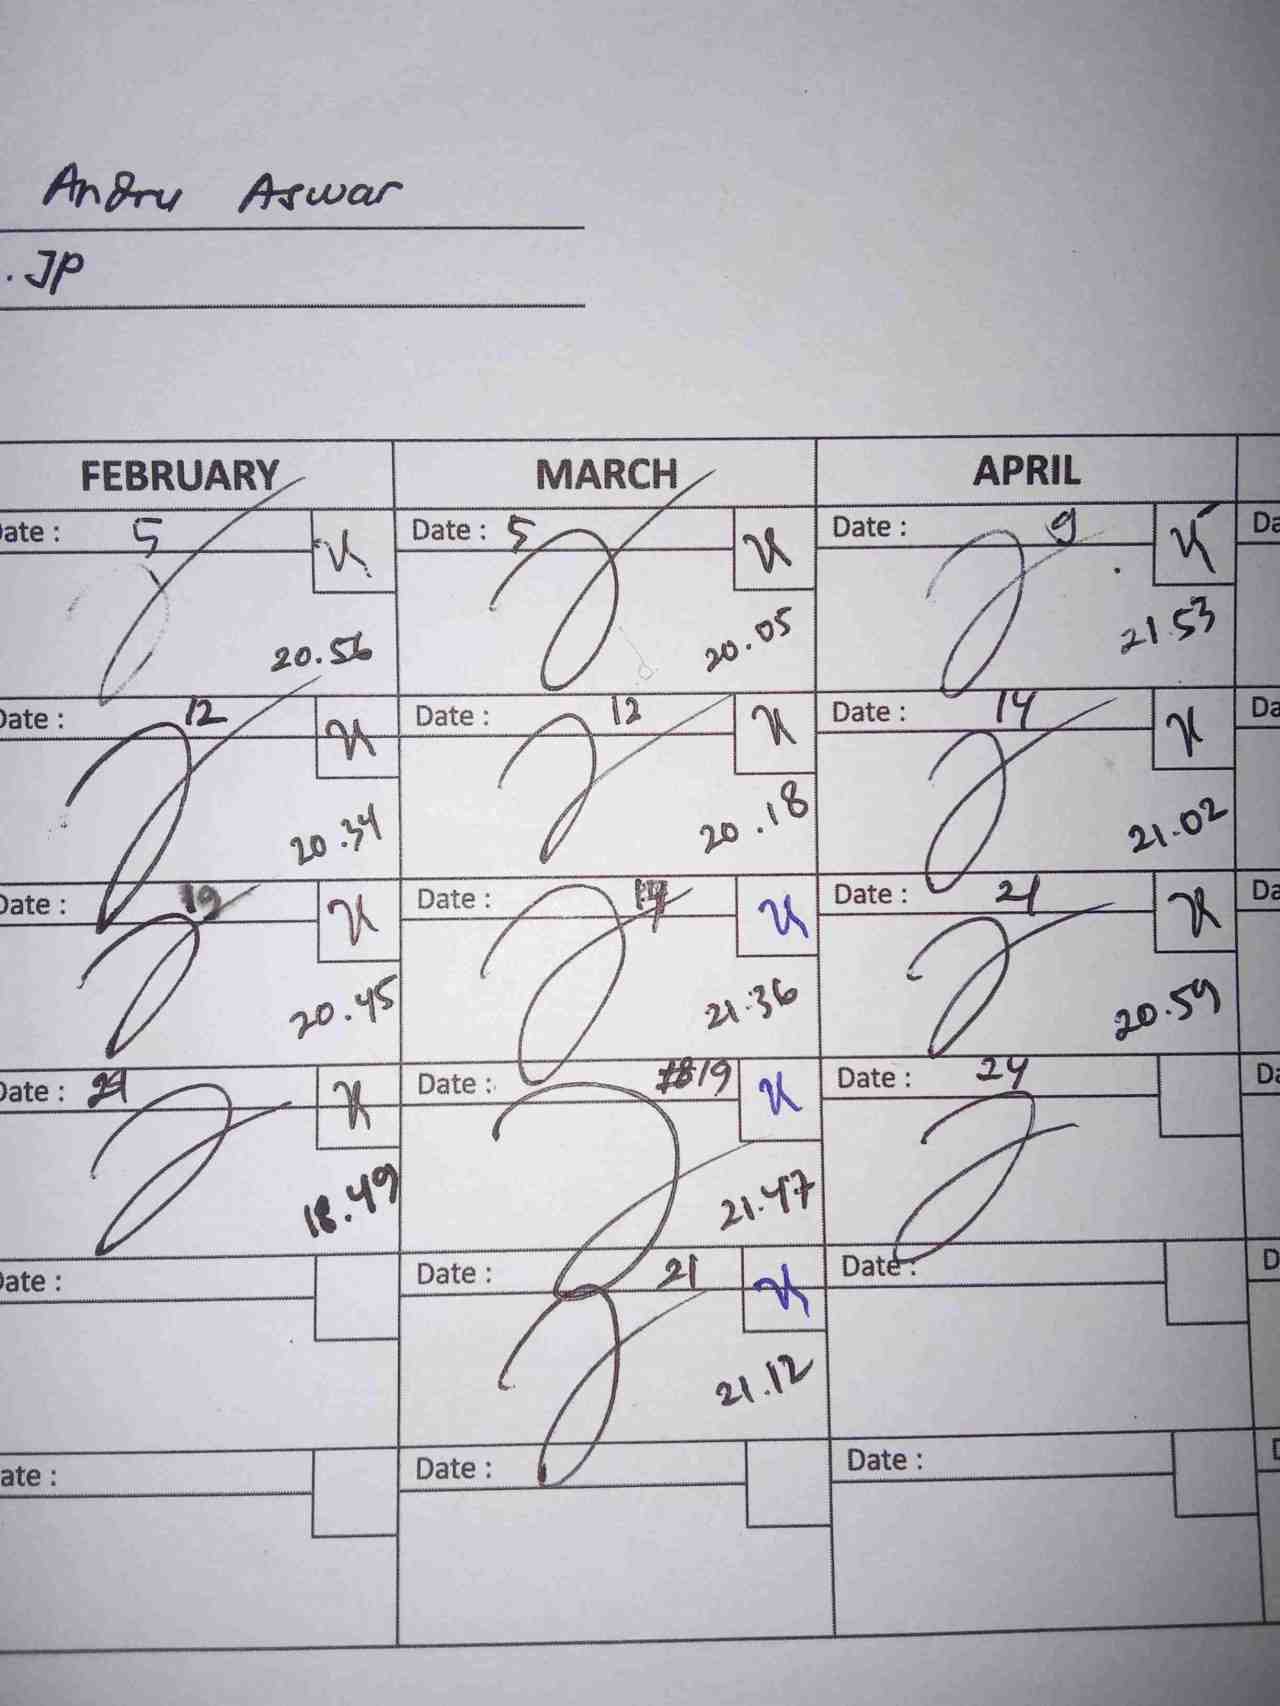 Andru Aswar
. JP
FEBRUARY MARCH APRIL
ate : 5 Date : 5 Date : 9 Da
20.56 20.05 21.53
Date : 12 Date : 12 Date : 14 Da
20.34 20.18 21.02
Date : 19 Date : Date : 21 Da
20.45 21.36 20.59
Date : Date : 19 Date : 24 Da
18.49 21.47
Date : Date : 21 Date : D
21.12
ate : Date : Date :